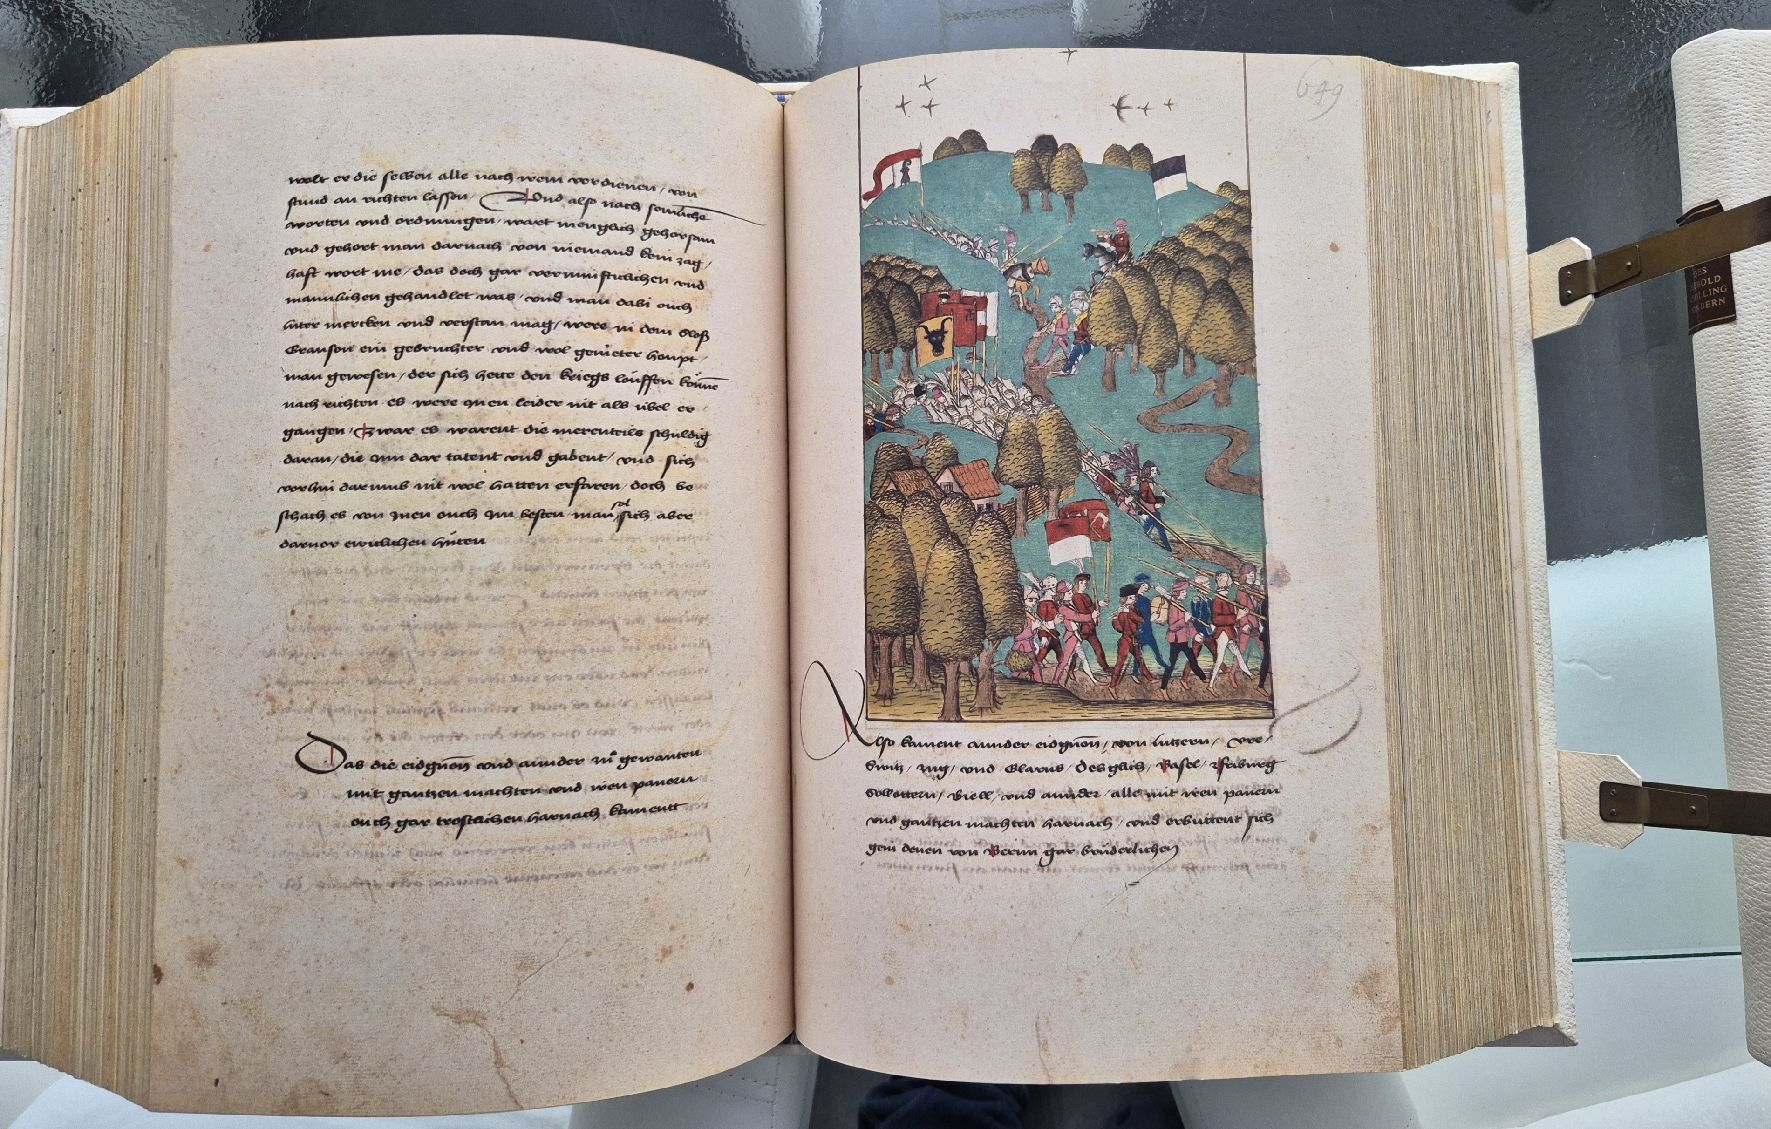 wolt er die selben alle nach irem verdienen / von
stund an richten lassen / Und also nach sömliche
worten und ordnungen / wart menglich gehorsam
und gehort man darnach von niemand kein zag /
haft wort me / das doch gar vernunfticlichen und
mannlichen gehandlet was / und man dabi ouch
luter mercken und verstan mag / were in dem Sloß
Granson ein gebruchter und wol geuieter houpt /
man gewesen / der sich hette den kriegs löuffen könne
nach richten es were inen leider nit als übel er /
gangen / Zwar es warent die merenteils schuldig
daran / die inn dar tatent und gabent / und sich
vorhin darumb nit wol hatten erfaren / doch be
schach es von inen ouch im besten man sol sich aber
darvor ewiclichen hüten
Das die eidgnoñ und ander zů gewanten
mit gantzen machten und iren panern
ouch gar trostlichen harnach kament
649
Also kament ander eidgnoñ / von lutzern / Ure /
Switz / zug / und Glarus / desglich / Basel / friburg
Solottern / Biell / und ander / alle mit iren panern
und gantzen machten harnach / und erbuttent sich
gein denen von Bernn gar brüderlichen
DES
DIEBOLD
SCHILLING
BERN